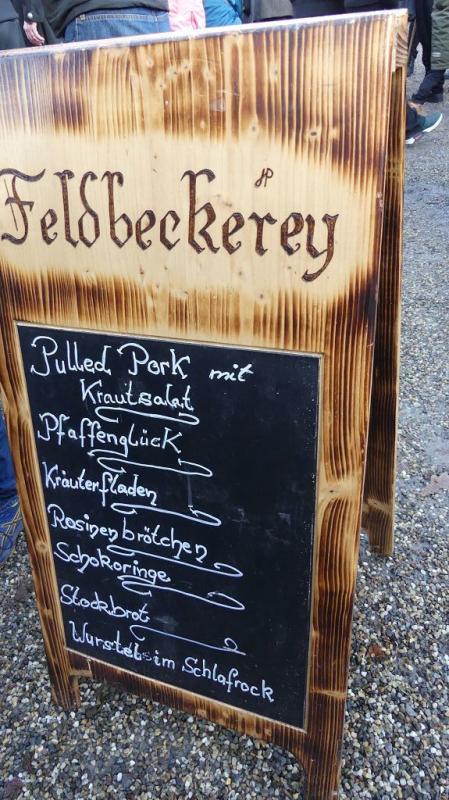 Feldbeckerey
Pulled Pork mit
Krautsalat
Pfaffenglück
Kräuterfladen
Rosinenbrötchen
Schokoringe
Stockbrot
Würstel im Schlafrock